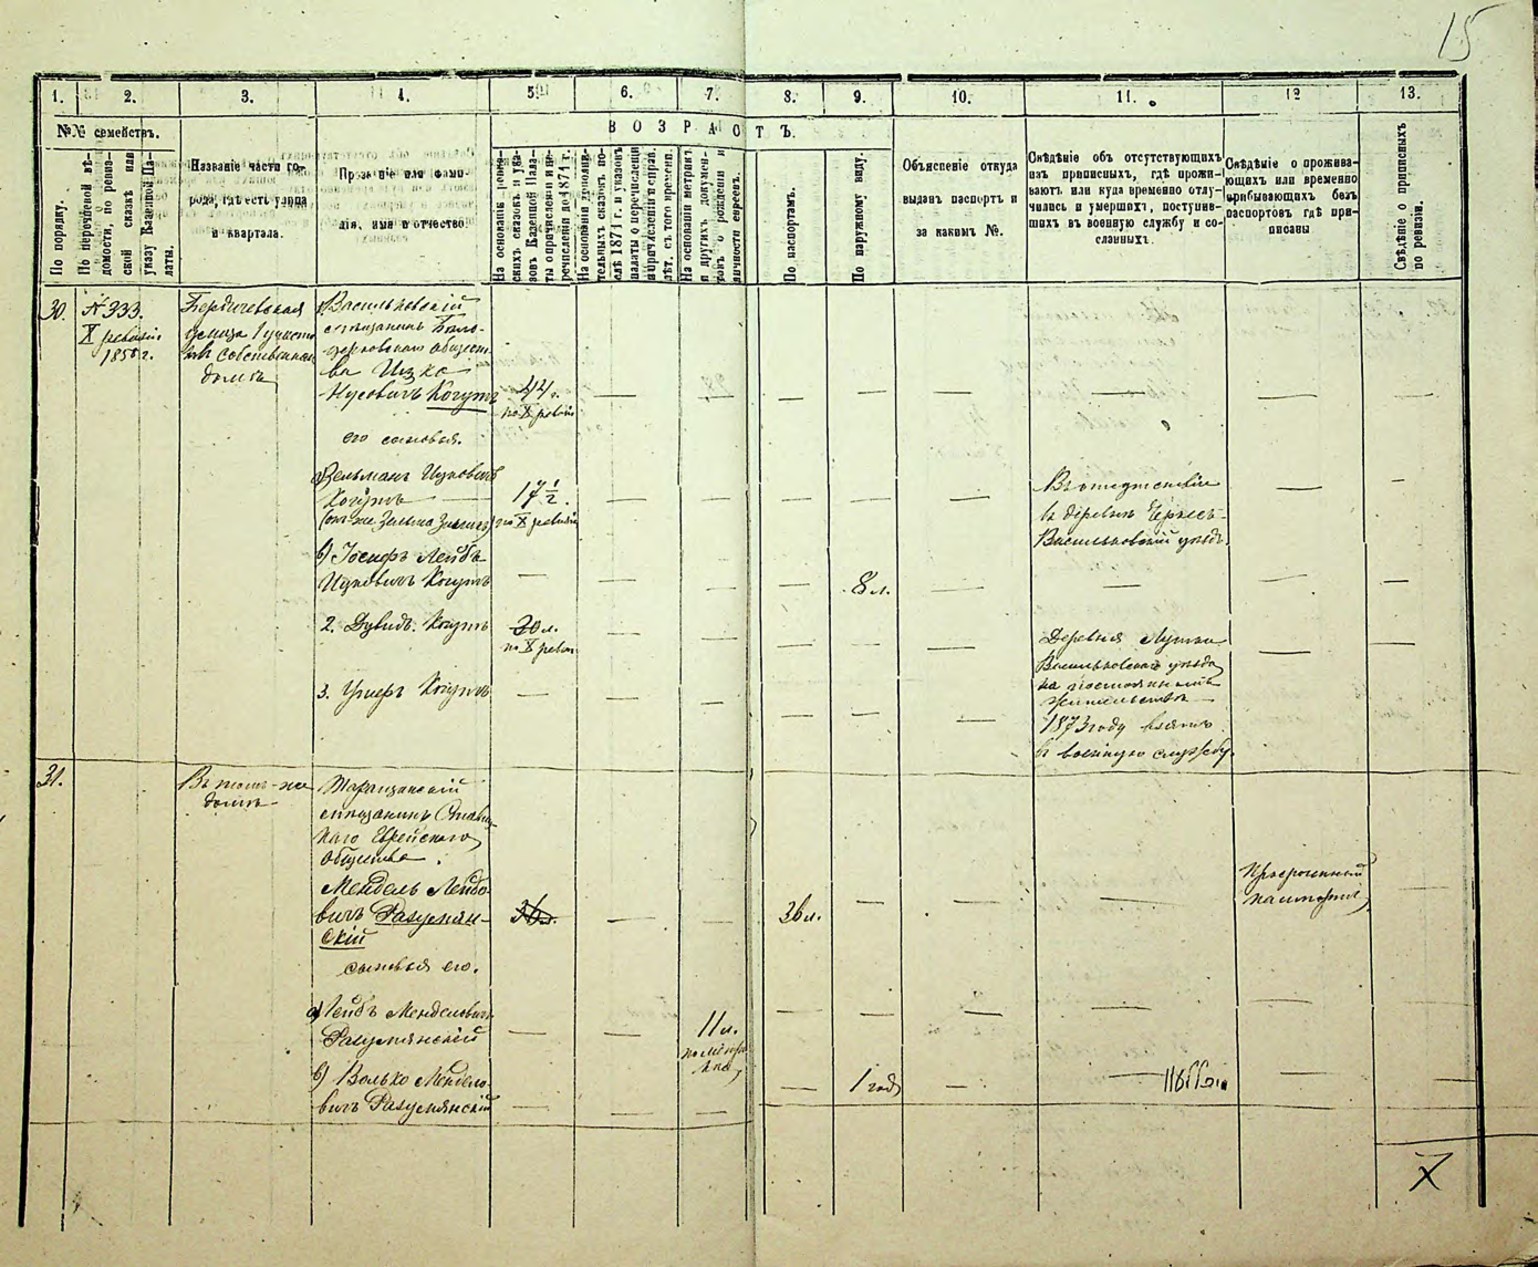 15
1. 2. 3. 4. 5. 6. 7. 8. 9. 10. 11. 12 13.
№№ семействъ.
По порядку.
По перечневой вѣ-
домости, по ревиз-
ской сказкѣ или
указу Казенной Па-
латы.
Названіе части го-
рода, гдѣ есть улица
и квартала.
Прозваніе или фами-
лія, имя и отчество
ВОЗРАСТЪ.
На основаніи ревиз-
скихъ сказокъ и ука-
зовъ Казенной Пала-
ты о причисленіи и пе-
речисленіи до 1874 г.
На основаніи дополни-
тельныхъ сказокъ по-
слѣ 1874 г. и указовъ
палаты о перечисленіи
и причисленіи справ.
лѣт. съ того времени.
На основаніи метрикъ
и другихъ докумен-
товъ о рожденіи и
личности евреевъ.
По паспортамъ.
По наружному виду.
Объясненіе откуда
выданъ паспортъ и
за какимъ №.
Свѣдѣніе объ отсутствующихъ
изъ приписныхъ, гдѣ прожи-
ваютъ или куда временно отлу-
чились и умершихъ, поступив-
шихъ въ военную службу и со-
сланныхъ.
Свѣдѣніе о прожива-
ющихъ или временно
прибывающихъ безъ
паспортовъ гдѣ при-
писаны
Свѣдѣніе о приписныхъ
по ревизіи.
30.
№ 333.
X ревизіи
185 г.
Бердичевская
улица 1 участ
въ собственном
домѣ
Васильковскій
мѣщанинъ Бѣло-
церковскаго общест
ва Ицко
Нусовичъ Когутъ
44.
по X ревизіи
его сыновья.
а) Зельманъ Ицковичъ
Когутъ
17 1/2.
по X ревизіи
Въ отсутствіи
въ деревнѣ
Васильковскій уѣздъ
б) Іосифъ Лейбъ
Ицковичъ Когутъ
8 л.
2. Дувидъ Когутъ
20 л.
по X ревиз
Деревня
Васильковскаго уѣзда
на постоянномъ
жительствѣ
3. Ушеръ Когутъ
1873 году взятъ
въ военную службу.
31.
Въ томъ-же
домѣ
Таращанскій
мѣщанинъ Ставищ
каго Еврейскаго
общества.
Мендель Лейбо-
вичъ Разумян-
скій
36 л.
Просроченный
паспортъ
сыновья его.
а) Лейбъ Менделовичъ
Разумянскій
11 л.
по метри
кѣ
б) Волько Менделo-
вичъ Разумянскій
1 годъ
X